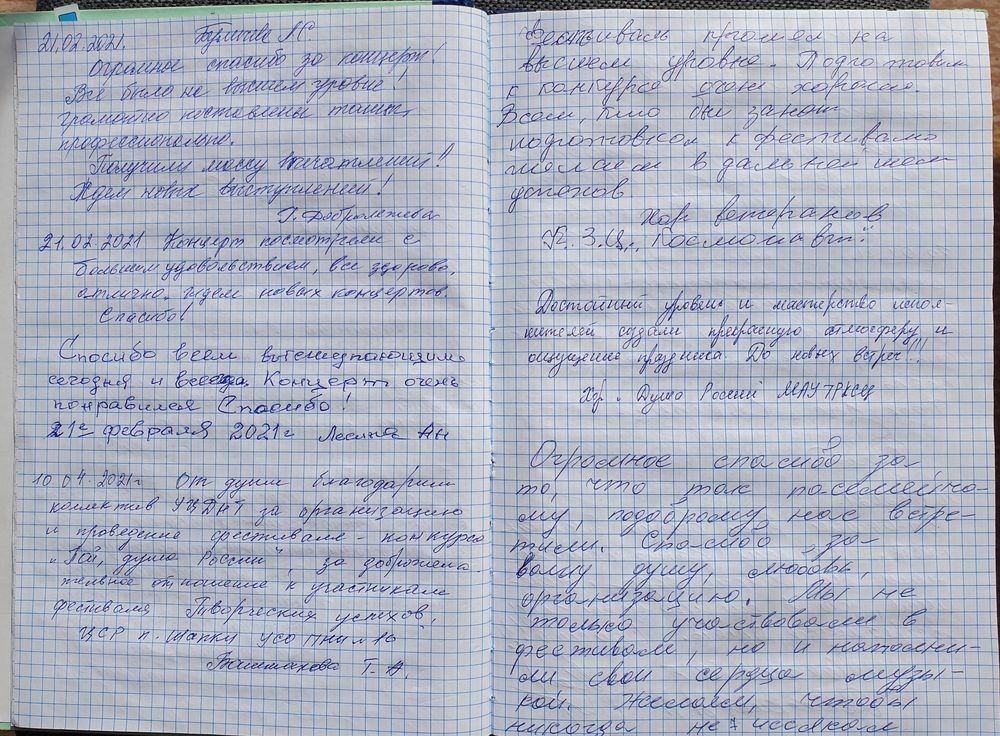 21.02.2021.
Огромное спасибо за концерт!
Всё было на высшем уровне!
Грамотно поставлены танцы,
профессионально.
Получили массу впечатлений!
Ждем новых выступлений!
21.02.2021 Концерт посмотрели с
большим удовольствием, все здорово,
отлично. Ждем новых концертов.
Спасибо!
Спасибо всем выступающим
сегодня и всегда. Концерт очень
понравился Спасибо!
21е февраля 2021г
10.04.2021г От души благодарим
коллектив УЦДНТ за организацию
и проведение фестиваля-конкурса
„Пой, душа России", за доброжела-
тельное отношение к участникам
фестиваля Творческих успехов,
ЦСР п. Шапки
Башмакова Т. А.
Фестиваль прошел на
высшем уровне. Подготовили
к конкурсу очень хорошо.
Всем, кто был занят
подготовкой к фестивалю
желаем в дальнейшем
успехов
Хор ветеранов
„Космонавт"
Достойный уровень и мастерство испол-
нителей создали прекрасную атмосферу и
ощущение праздника. До новых встреч!!!
Хор. Душа России МАУ ТРКСЦ
Огромное спасибо за
то, что так по-семейно-
му, подоброму нас встре-
тили. Спасибо за
вашу душу, любовь,
организацию. Мы не
только участвовали в
фестивале, но и наполни-
ли свои сердца музы-
кой. Желаем, чтобы
никогда не иссякали